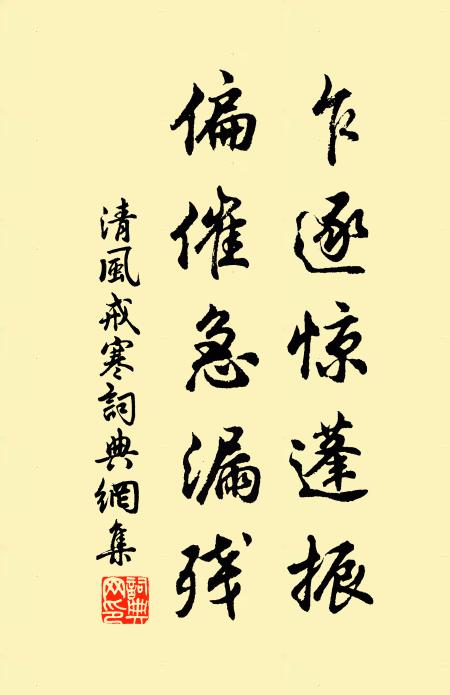 乍逐惊蓬振
偏催急漏残
清風戒寒詞典網集
詞典网印